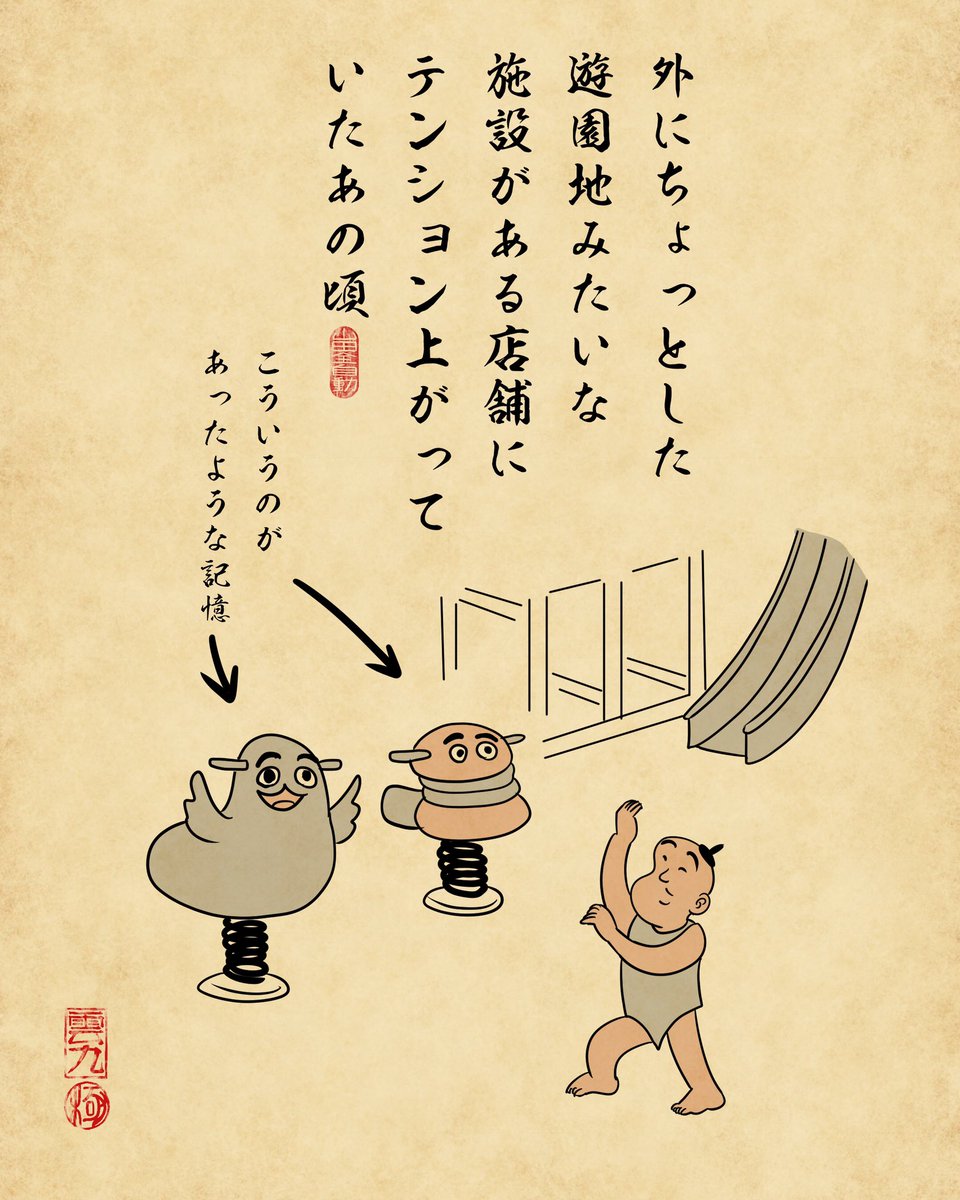 外にちょっとした
遊園地みたいな
施設がある店舗に
テンション上がって
いたあの頃
こういうのが
あったような記憶